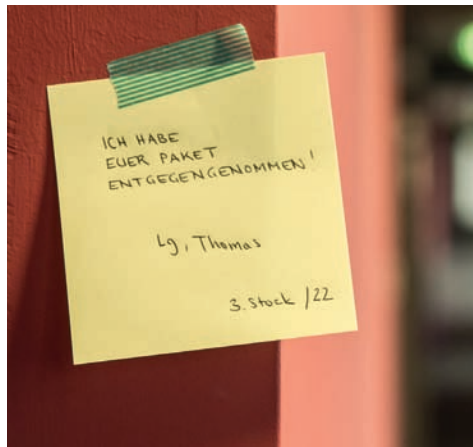 ICH HABE
EUER PAKET
ENTGEGENGENOMMEN!
Lg, Thomas
3. Stock /22